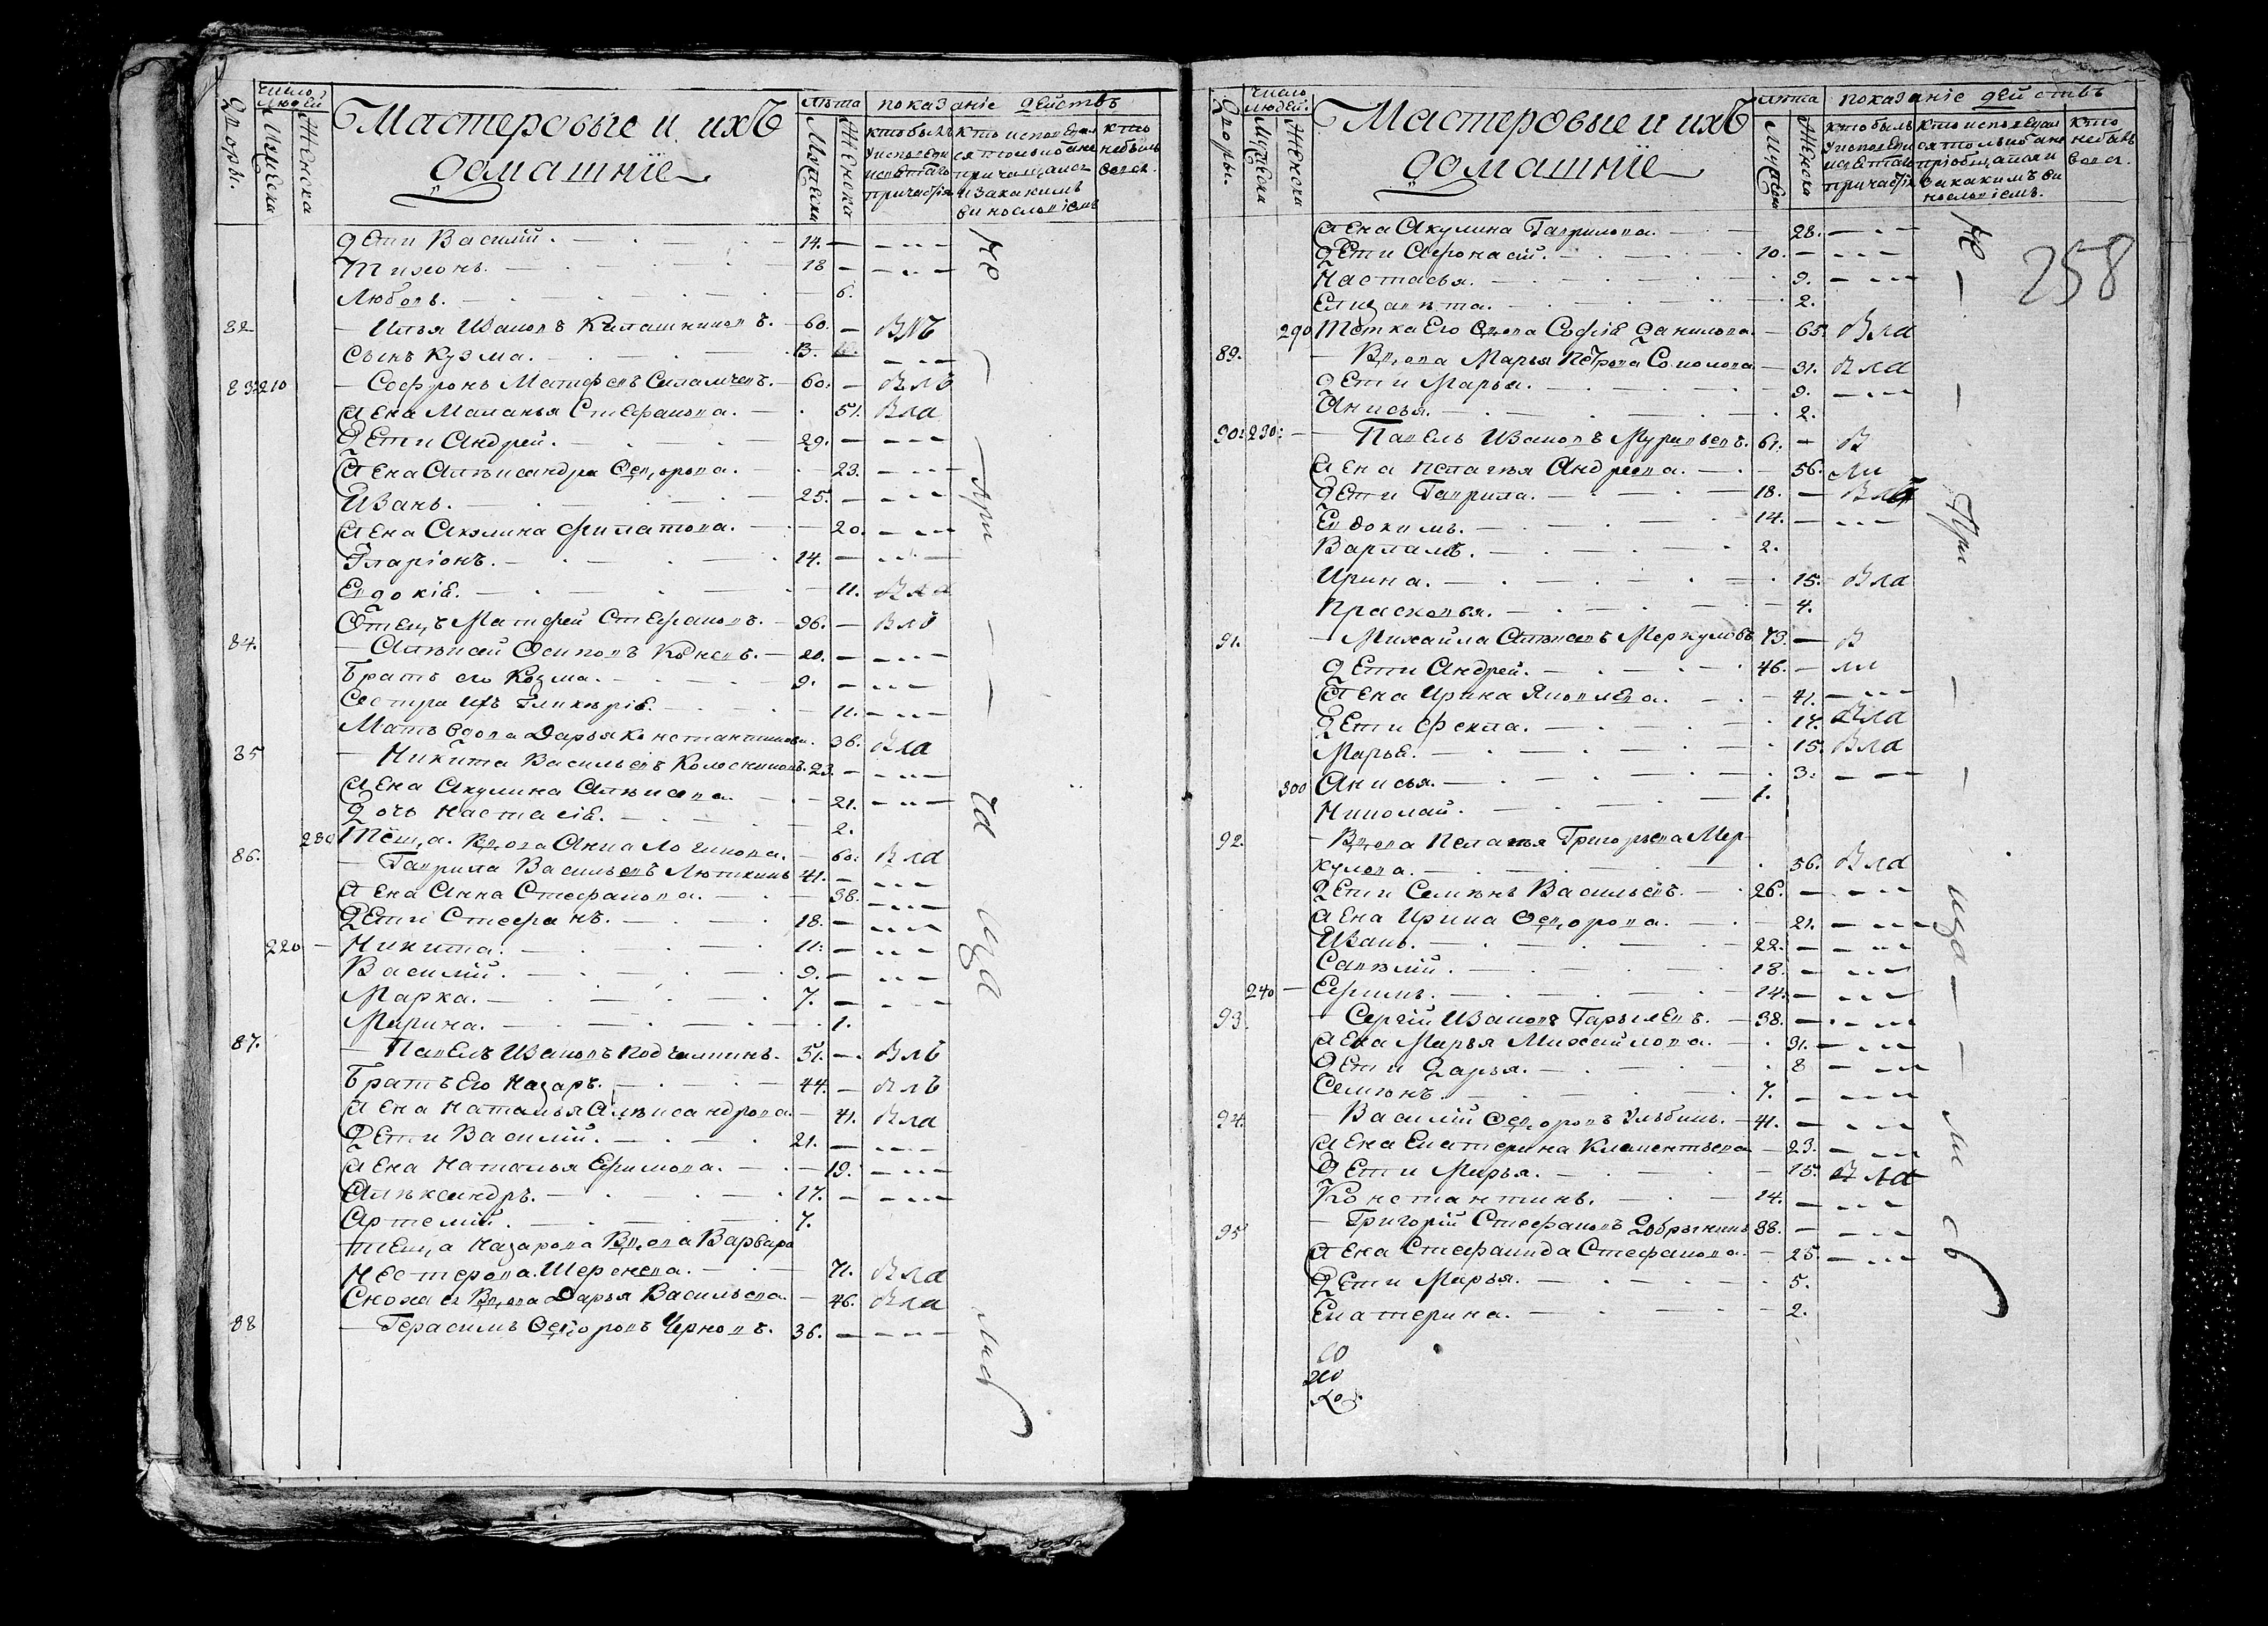 число людей
Дворы.
Мужеска
Женска
Мастеровые и ихъ
домашнïе
лѣта
Мужеска
Женска
показанïе действъ
кто былъ у исповеди и святаго причастïя
кто исповедался только а не причащался и за какимъ винословïемъ
кто не былъ
дети Василïй. 14.
Тихонъ. 18
Любовь. 6.
82 Илья Ивановъ Калашниковъ. 60. Влъ
сынъ Кузма. 13.
83. 210 Софронъ Матфевъ 60. Влъ
жена Маланья Стефанова. 51. Вла
Дети Андрей. 29.
жена Алѣксандра Федорова. 23.
Иванъ. 25.
жена Акулина Филатова. 20.
Иларïонъ. 14.
Евдокïя. 11. Вла
Отецъ Матфей Стефановъ. 96. Влъ
84. Алѣксей Осиповъ Коневъ. 20.
братъ его Козма. 9.
Сестра ихъ Гликерïя. 11.
Мать вдова Дарья Константинова. 36. Вла
85 Никита Васильевъ Колесниковъ. 23.
жена Акулина Алѣксеева. 21.
Дочь Настасïя. 2.
280 Тёща. Вдова Анна Логинова. 60. Вла
86. Гаврила Васильевъ Лютинъ 41.
жена Анна Стефанова. 38.
Дети Стефанъ. 18.
220 Никита. 11.
Василïй. 9.
Марка. 7.
Марина. 1.
87. Павелъ Ивановъ 51. Влъ
братъ Его Назаръ. 44. Влъ
жена Наталья Алѣксандрова. 41. Вла
Дети Василïй. 21.
жена Наталья Ефимова. 19.
Алѣксандръ. 17.
Артемïй. 7.
теща Назарова Вдова Варвара
Нестерова. 71. Вла
Сноха ея Вдова Дарья Васильева. 46. Вла
88 Герасимъ Федоровъ Черновъ. 36.
число людей.
Дворы.
Мужеска
Женска
Мастеровые и ихъ
домашнïе
лѣта
Мужеска
Женска
показанïе действъ
кто былъ у исповеди и святаго причастïя
кто исповедался только а не прïобщался и за какимъ винословïемъ.
кто не былъ
258
жена Акулина Гаврилова. 28.
Дети Афонасïй. 10.
Настасья. 9.
Елизавѣта. 2.
290 Тётка Его вдова Софïя Данилова. 65. Вла
89. Вдова Марья Петрова Соколова 31. Вла
дети Марья. 9.
Анисья. 2.
90. 230. Павелъ Ивановъ 61. В
жена Пелагья Андреева. 56. ли
дети Гаврила. 18. Влъ
Евдокимъ. 14.
Варламъ. 2.
Ирина. 15. Вла
Прасковья. 4.
91. Михайла Алѣксевъ Меркуловъ 73. В
дети Андрей. 46. ли
жена Ирина Яковлева. 41.
Дети Фекла. 17. Вла
Марья. 15. Вла
300 Анисья. 3.
Николай. 1.
92. Вдова Пелагья Григорьева Мер-
кулова. 56. Вла
Дети Семенъ Васильевъ. 26.
жена Ирина Федорова. 21.
Иванъ. 22.
Савелïй. 18.
240 Ефимъ. 14.
93. Сергïй Ивановъ 38.
жена Марья Михайлова. 31.
Дети Дарья. 8
Семенъ. 7.
94. Василïй Федоровъ 41.
жена Екатерина Климентьева 23.
Дети Марья. 15. Вла
Константинъ. 14.
95 Григорïй Стефановъ Добрынинъ 38.
жена Стефанида Стефанова. 25.
Дети Марья. 5.
Екатерина. 2.